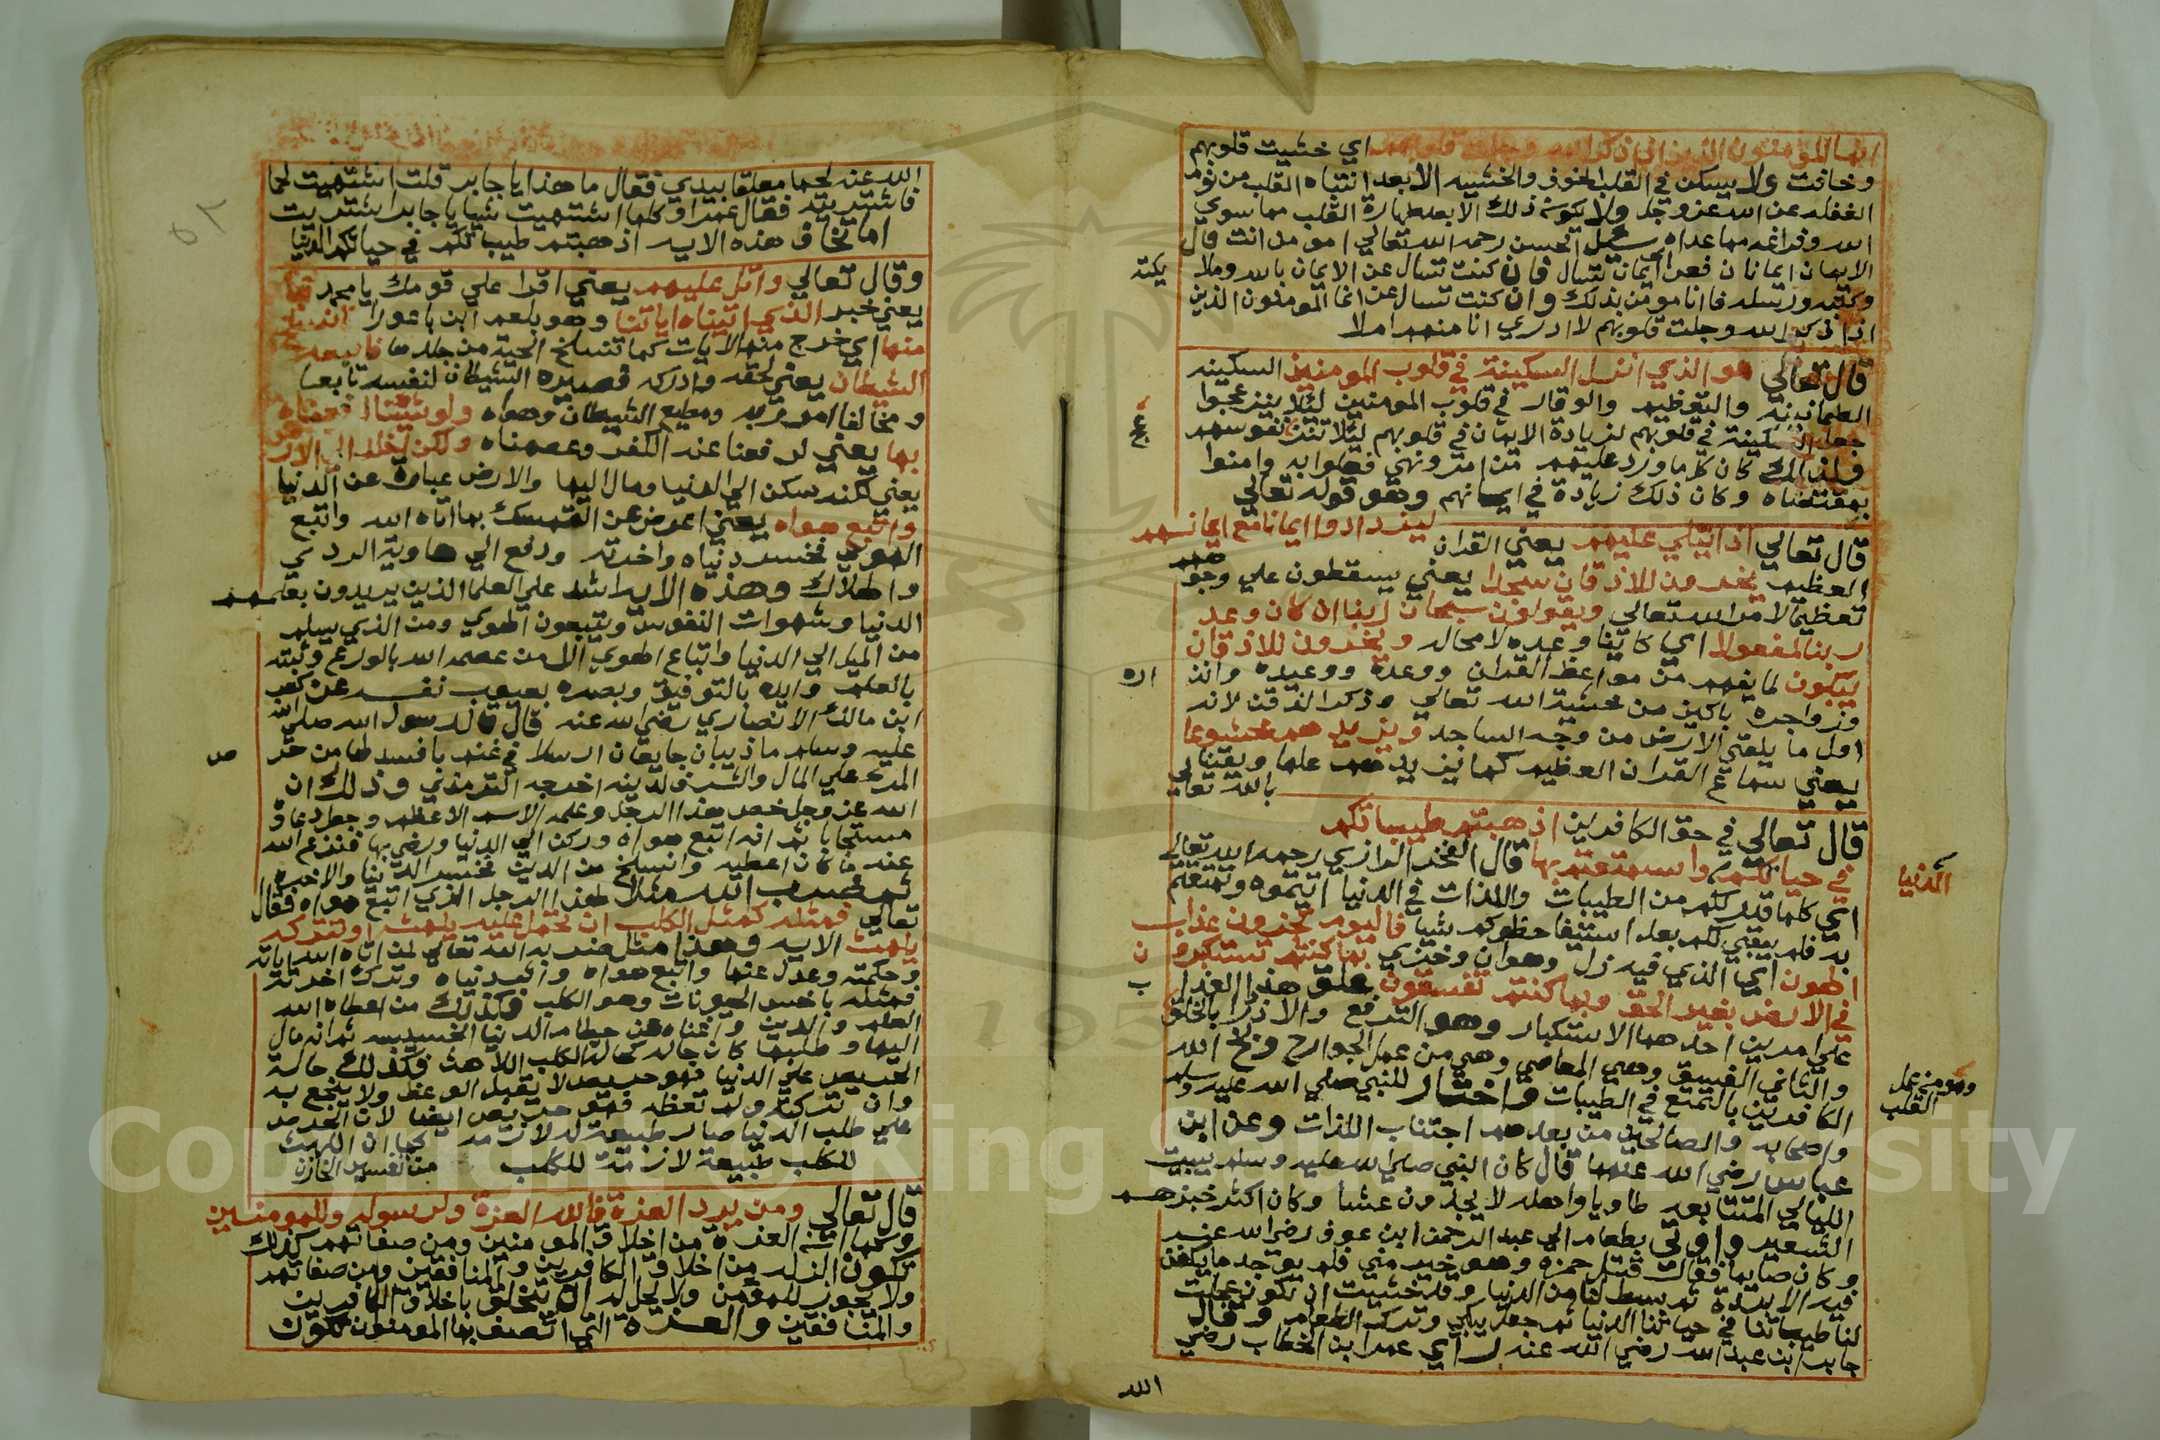 انما المؤمنون الذين اذا ذكر الله وجلت قلوبهم اي خشيت قلوبهم
وخافت ولا يسكن في القلب الخوف والخشيه الا بعد انتباه القلب من نوم
الغفله عن الله عز وجل ولا يكون ذلك الا بعد طهارة القلب مما سوي
الله وفراغه مما عداه سيل الحسن رحمه الله تعالي امومن انت قال
الايمان ايمانان فعن ايمان تسال فان كنت تسال عن الايمان بالله وملا
يكته
وكتبه ورسله فانا مومن بذلك وان كنت تسال عن انما المومنون الذين
اذا ذكر الله وجلت قلوبهم لا ادري انا منهم ام لا
قال تعالي هو الذي انزل السكينة في قلوب المومنين السكينه
الطمانينه والتعظيم والوقار في قلوب المومنين ليلا ينزعجوا
جعل السكينة في قلوبهم لزيادة الايمان في قلوبهم ليلا نفوسهم
كان كلما ورد عليهم من امر ونهي فعملوا به وامنوا
بمقتضاه وكان ذلك زيادة في ايمانهم وهو قوله تعالي
ليزدادوا ايمانا مع ايمانهم
قال تعالي اذا يتلي عليهم يعني القران
العظيم يخرون للاذقان سجدا يعني يسقطون علي وجوههم
تعظيما لامر الله تعالي ويقولون سبحان ربنا ان كان وعد
ربنا لمفعولا اي كاينا وعده لا محاله ويخرون للاذقان
يبكون لما يفهم من مواعظ القران ووعده ووعيده وانذ
اره
وزواجره باكين من خشية الله تعالي وذكر الذقن لانه
اول ما يلقي الارض من وجه الساجد ويزيدهم خشوعا
يعني سماع القران العظيم كما يزيدهم علما ويقينا
بالله تعالي
قال تعالي في حق الكافرين اذهبتم طيباتكم
في حياتكم الدنيا واستمتعتم بها قال الفخر الرازي رحمه الله تعالي
اي كلما قدر لكم من الطيبات واللذات في الدنيا اتيتموه وتمتعتم
به فلم يبقي لكم بعد استيفا حظوكم شيا فاليوم تجزون عذاب
الهون اي الذي فيه ذل وهوان وخزي بما كنتم تستكبرون
في الارض بغير الحق وبما كنتم تفسقون علق هذا العذاب
علي امرين احدهما الاستكبار وهو الترفع والاذرا بالخلق
وهو من عمل القلب
والثاني الفسق وهي المعاصي وهي من عمل الجوارح وبخ الله
الكافرين بالتمتع في الطيبات واختار للنبي صلي الله عليه وسلم
واصحابه والصالحين من بعدهم اجتناب اللذات وعن ابن
عباس رضي الله عنهما قال كان النبي صلي الله عليه وسلم يبيت
الليالي المتتابعه طاويا واهله لا يجدون عشا وكان اكثر خبزهم
الشعير واوتي بطعام الي عبد الرحمن ابن عوف رضي الله عنه
وكان صايما فقال قتل حمزه وهو خير مني فلم يوجد ما يكفن
فيه الا بردة ثم بسط لنا من الدنيا وقد خشيت ان تكون عجلت
لنا طيباتنا في حياتنا الدنيا ثم جعل يبكي وترك الطعام وقال
جابر ابن عبد الله رضي الله عنه راي عمر ابن الخطاب رضي
الله
الله عنه لحما معلقا بيدي فقال ما هذا يا جابر قلت اشتهيت لحما
فاشتريته فقال عمر او كلما اشتهيت شيا يا جابر اشتريت
اما تخاف هذه الايه اذهبتم طيباتكم في حياتكم الدنيا
وقال تعالي واتل عليهم يعني اقرا علي قومك يا محمد نبا
يعني خبر الذي اتيناه اياتنا وهو بلعم ابن باعورا انسلخ
منها اي خرج منها الايات كما تنسلخ الحية من جلدها فاتبعه
الشيطان يعني لحقه وادركه فصيره الشيطان لنفسه تابعا
ومخالفا امر ربه ومطيع الشيطان وهواه ولو شينا لرفعناه
بها يعني لرفعنا عنه الكفر وعصمناه ولكن اخلد الي الارض
يعني لكنه سكن الي الدنيا ومال اليها والارض عبارة عن الدنيا
واتبع هواه يعني اعرض عن التمسك بما اتاه الله واتبع
الهوي فخسر دنياه واخرته ودفع الي هاوية الردي
والهلاك وهذه الايه اشد علي العلما الذين يريدون بعلمهم
الدنيا وشهوات النفوس ويتبعون الهوي ومن الذي يسلم
من الميل الي الدنيا واتباع الهوي الا من عصمه الله بالورع وثبته
بالعلم وايده بالتوفيق وبصره بعيوب نفسه عن كعب
ابن مالك الانصاري رضي الله عنه قال قال رسول الله صلي الله
عليه وسلم ما ذيبان جايعان ارسلا في غنم بافسد لها من حر
ص
المرء علي المال والشرف لدينه اخرجه الترمذي وذلك ان
الله عز وجل خص هذا الرجل وعلمه الاسم الاعظم وجعل دعاوه
مستجابا ثم انه اتبع هواه وركن الي الدنيا ورضي بها فنزع الله
عنه ما كان اعطيه وانسلخ من الدين فخسر الدنيا والاخره
ثم ضرب الله مثلا لهذا الرجل الذي اتبع هواه فقال
تعالي فمثله كمثل الكلب ان تحمل عليه يلهث او تتركه
يلهث الايه وهذا مثل ضربه الله تعالي لمن اتاه الله اياته
وحكمته وعدل عنها واتبع هواه واثر دنياه وترك اخرته
فمثله باخس الحيونات وهو الكلب فكذلك من اعطاه الله
العلم والدين واغناه عن حطام الدنيا الخسيسه ثم انه مال
اليها وطلبها كان حاله كحالة الكلب اللاهث فكذلك حالة
الحريص علي الدنيا فهو حريص لا يقبل الوعظ ولا ينجع به
وان تركته ولم تعظه فهو حريص ايضا لان الحرص
علي طلب الدنيا صار طبيعة له لازمه كما ان اللهث
للكلب طبيعة لازمة للكلب من تفسير الخازن
قال تعالي ومن يرد العزة فلله العزة ولرسوله وللمومنين
وكما ان العزة من اخلاق المومنين ومن صفاتهم كذلك
تكون الذله من اخلاق الكافرين والمنافقين ومن صفاتهم
ولا يجوز للمومن ولا يحل له ان يتخلق باخلاق الكافرين
والمنافقين والعزة التي اتصف بها المومنون تكون
Copyright © King Saud University